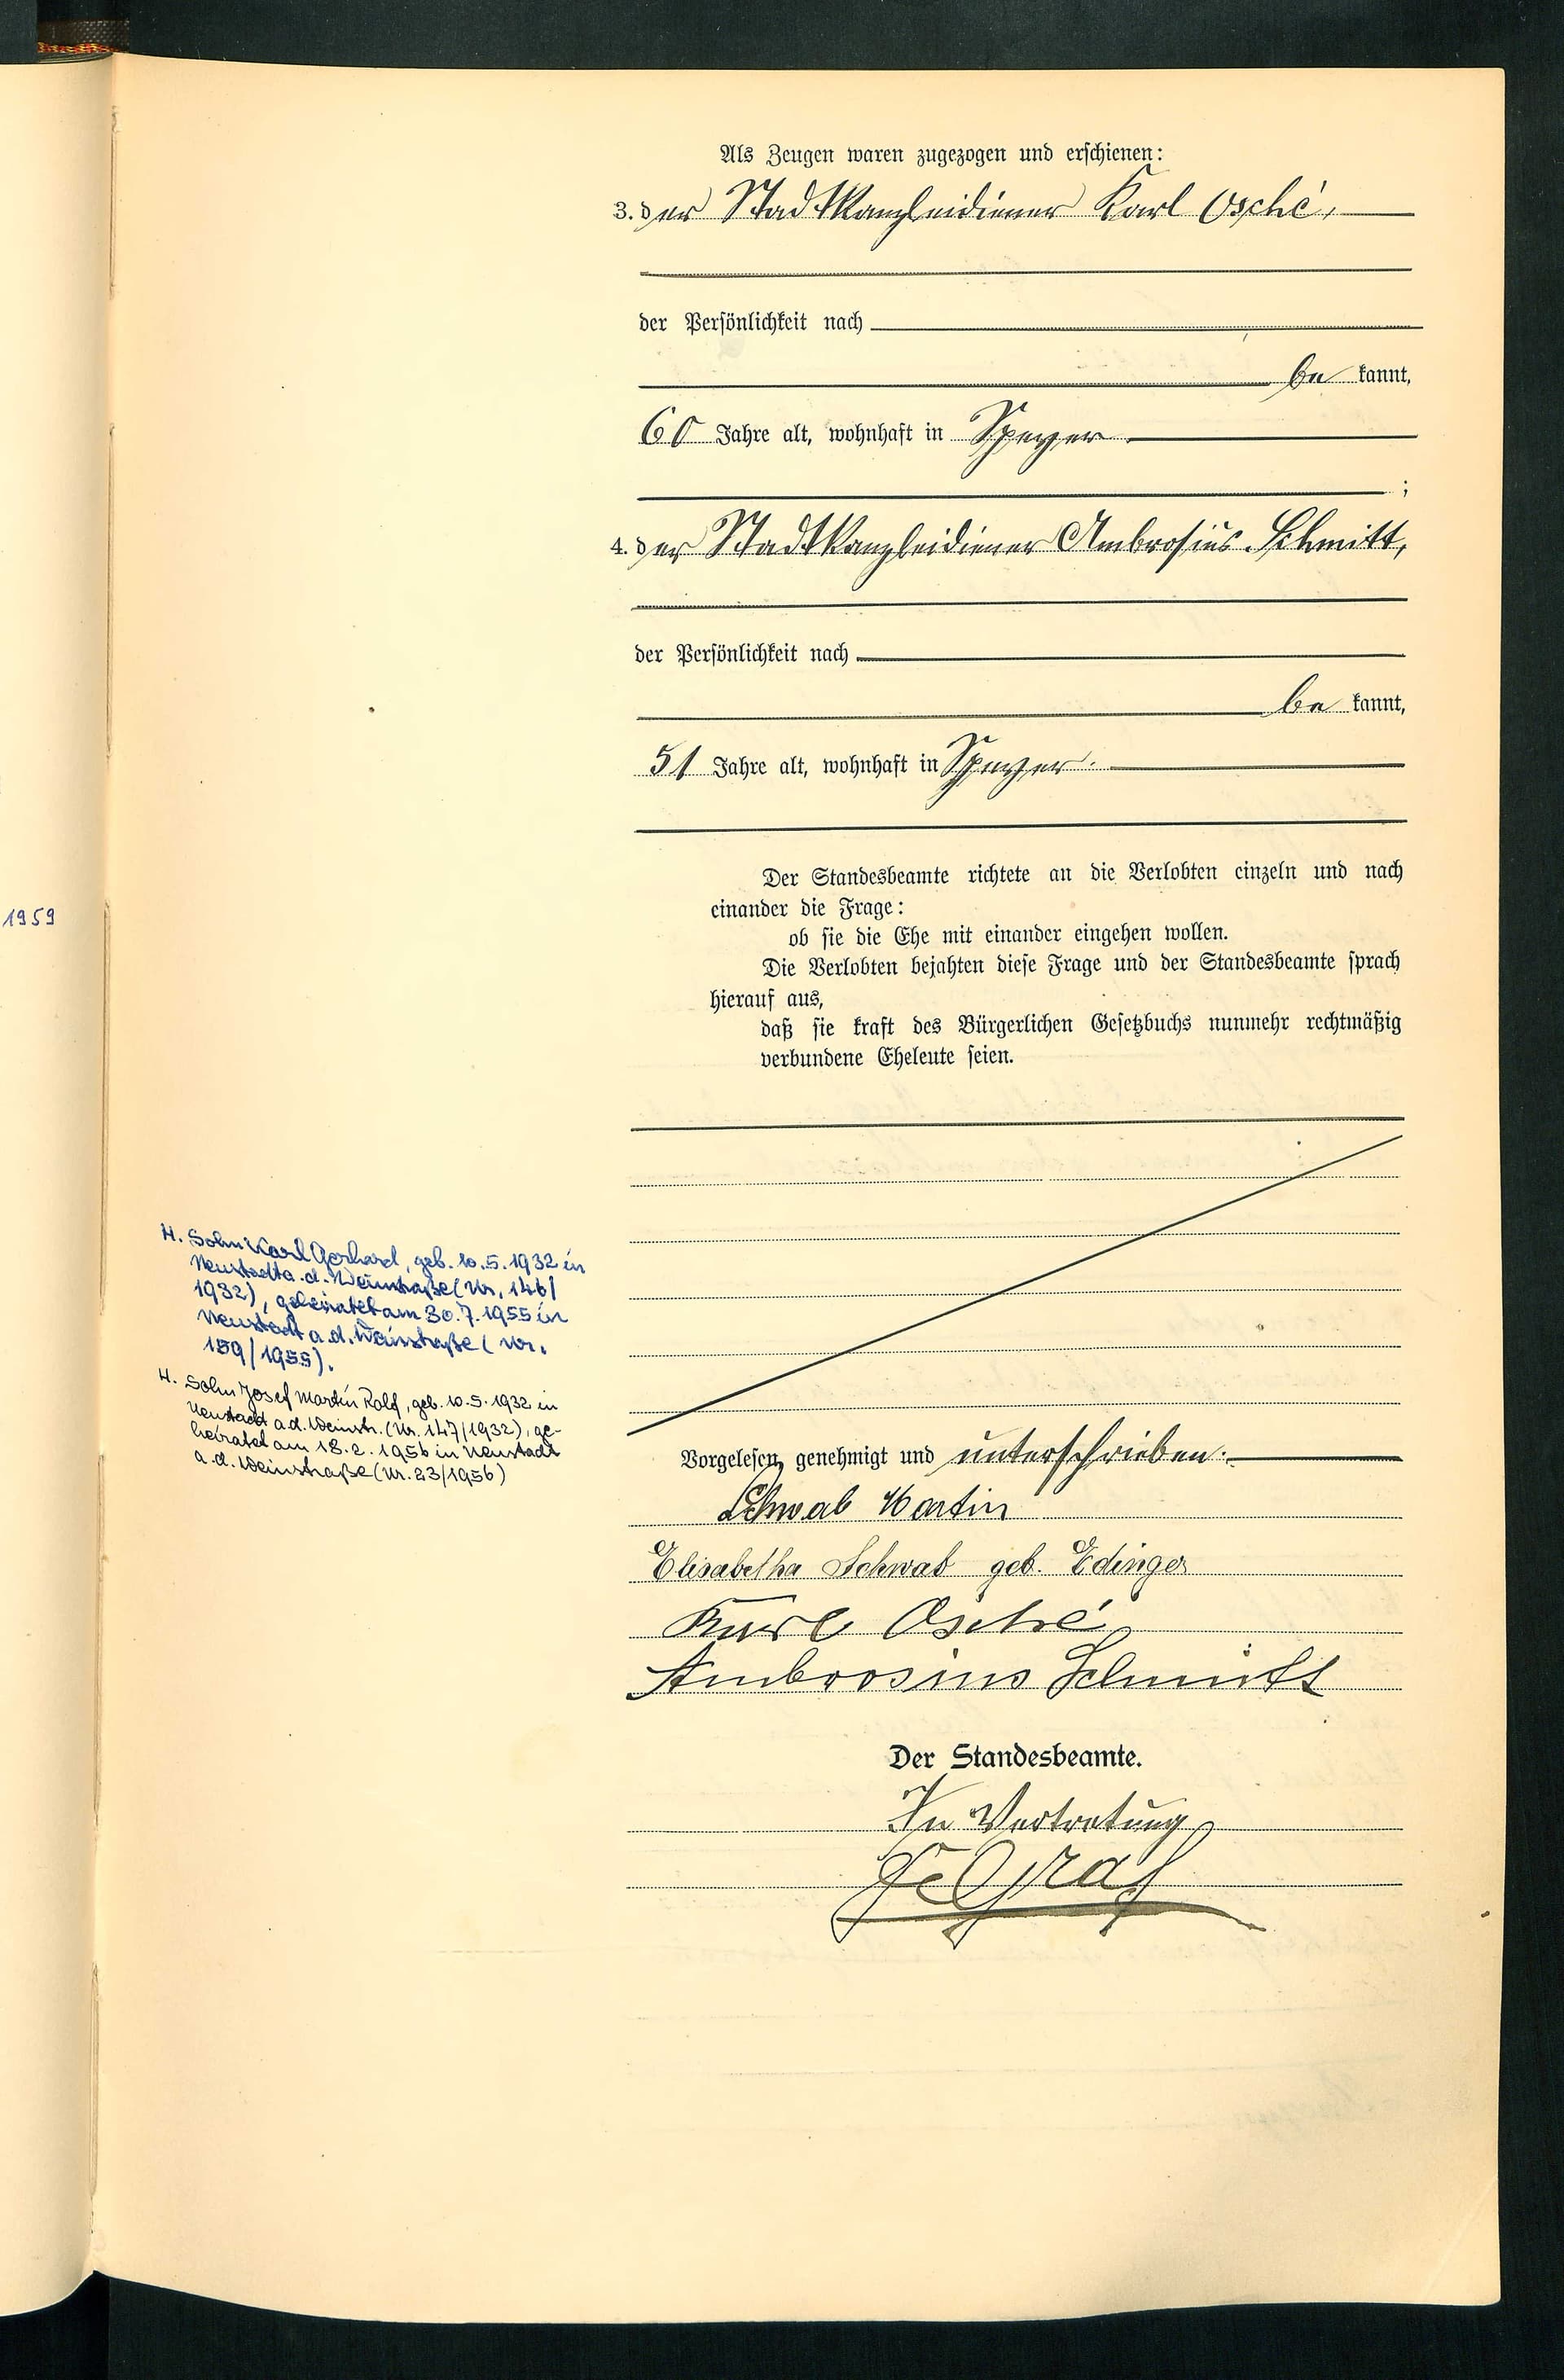 Als Zeugen waren zugezogen und erschienen:
3. der Stadtkanzleidiener Karl Osché,
der Persönlichkeit nach
be kannt,
60 Jahre alt, wohnhaft in Speyer.
;
4. der Stadtkanzleidiener Ambrosius Schmitt,
der Persönlichkeit nach
be kannt,
51 Jahre alt, wohnhaft in Speyer.
Der Standesbeamte richtete an die Verlobten einzeln und nach
einander die Frage:
ob sie die Ehe mit einander eingehen wollen.
Die Verlobten bejahten diese Frage und der Standesbeamte sprach
hierauf aus,
daß sie kraft des Bürgerlichen Gesetzbuchs nunmehr rechtmäßig
verbundene Eheleute seien.
1959
H. Sohn Karl Gerhard, geb. 10.5.1932 in
Neustadt a.d. Weinstraße (Nr. 146/
1932), geheiratet am 30.7.1955 in
Neustadt a.d. Weinstraße (Nr.
159/1955).
H. Sohn Josef Martin Rolf, geb. 10.5.1932 in
Neustadt a.d. Weinstr. (Nr. 147/1932), ge-
heiratet am 18.2.1956 in Neustadt
a.d. Weinstraße (Nr. 23/1956)
Vorgelesen, genehmigt und unterschrieben.
Schwab Martin
Elisabetha Schwab geb. Edinger
Karl Osché
Ambrosius Schmitt
Der Standesbeamte.
In Vertretung
Graf